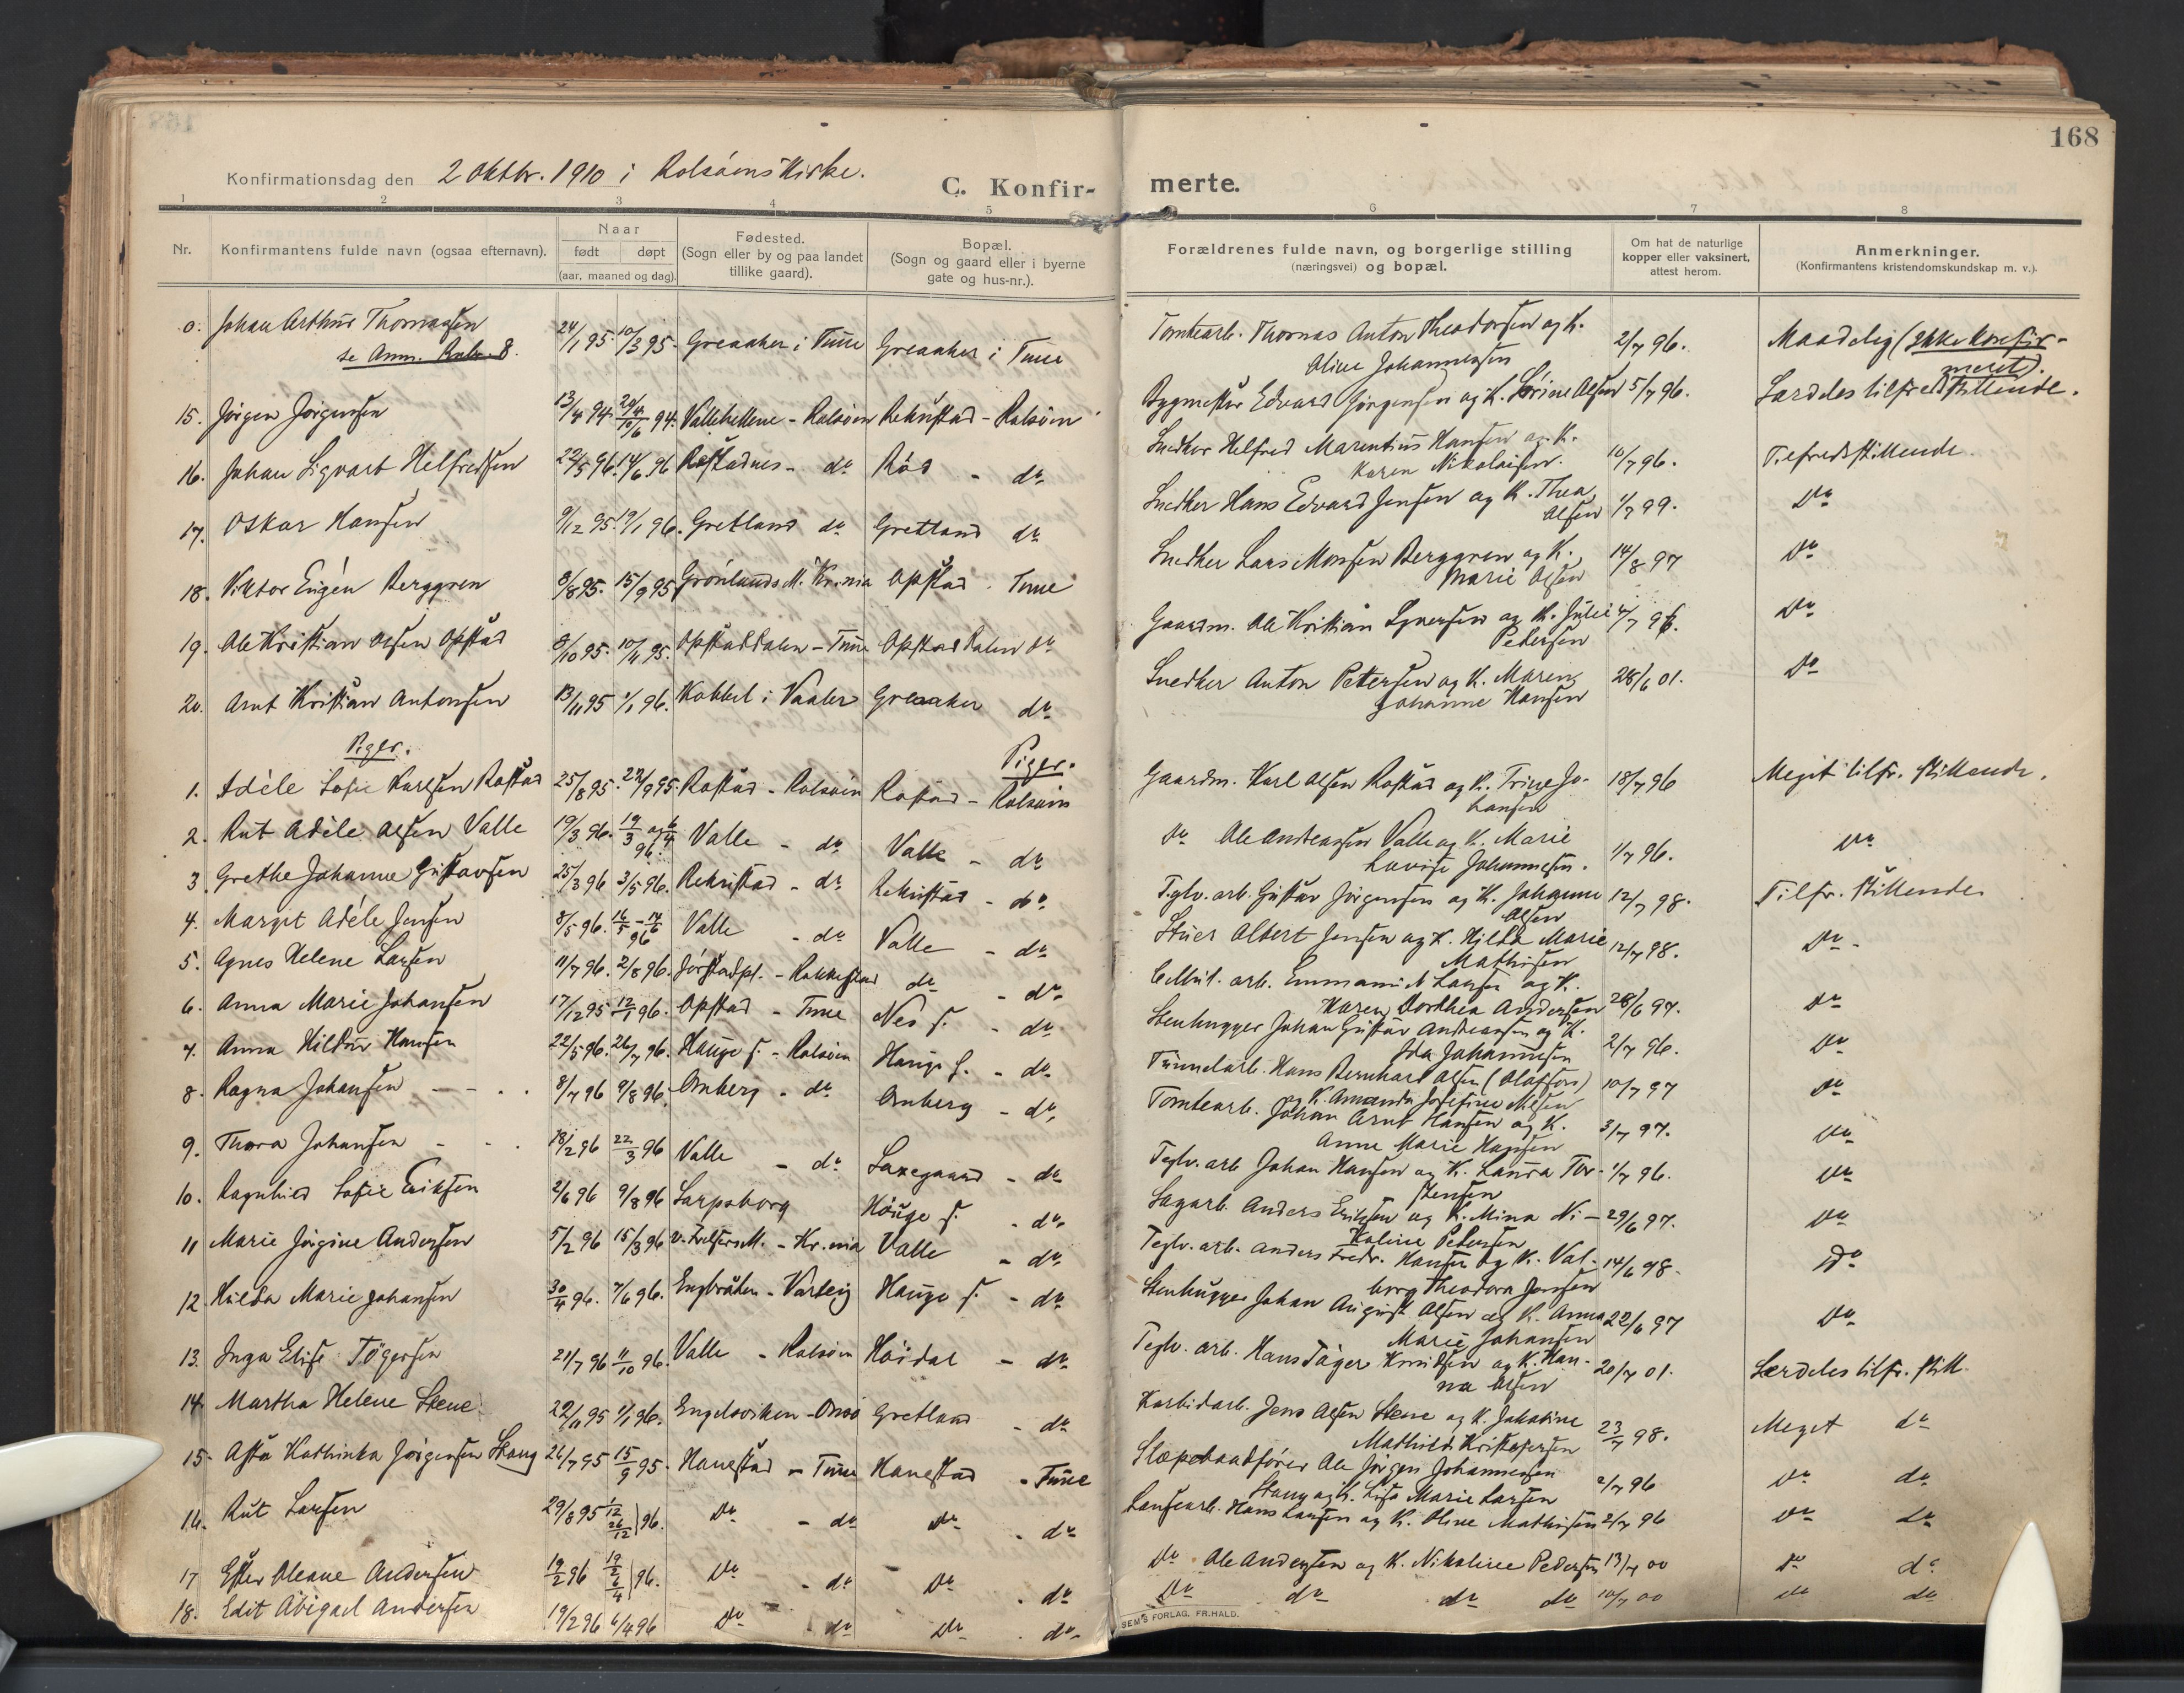 168
Konfirmationsdag den 2 Oktbr. 1910 i Rolsöens Kirke.
C. Konfir-
merte.
1 2 3 4 5 6 7 8
Nr.
Konfirmantens fulde navn (ogsaa efternavn).
Naar
født døpt
(aar, maaned og dag).
Fødested.
(Sogn eller by og paa landet
tillike gaard).
Bopæl.
(Sogn og gaard eller i byerne
gate og hus-nr.).
Forældrenes fulde navn, og borgerlige stilling
(næringsvei) og bopæl.
Om hat de naturlige
kopper eller vaksinert,
attest herom.
Anmerkninger.
(Konfirmantens kristendomskundskap m. v.).
0. Johan Arthur Thomassen 24/1 95. 10/3 95. Greaaker i Tune Greaaker i Tune Tomtearb. Thomas Anton Theodorsen og K. 2/7 96. Maadelig (ikke konfir-
se Anm. Rubr. 8. Oline Johannessen meret).
15. Jörgen Jörgensen 13/4 94. 94. Vallehellene - Rolsöen Rekustad - Rolsöen Bygmester Edvard Jörgensen og K. Sörine Olsen 5/7 96. Særdeles tilfredsstillende.
16. Johan Sigvart Helfredsen 22/5 96. 14/6 96 do Röd - do Snedker Helfred Marentius Hansen og K. 10/7 96. Tilfredsstillende
Karen Nikolaisen.
17. Oskar Hansen 9/12 95. 19/1 96. Gretland do Gretland do Snedker Hans Edvard Jensen og K. Thea 1/7 99. Do
Olsen
18. Viktor Eugén Berggren 8/8 95. 15/9 95 Grönlands M. Kr.nia Opstad - Tune Snedker Lars Monsen Berggren og K. 14/8 97 Do
Marie Olsen
19. Ole Kristian Olsen Opstad 8/10 95. 10/11 95. Opstaddalen - Tune Opstaddalen do Gaardm. Ole Kristian Syversen og K. Julie 4/7 96. Do
Petersen
20. Arnt Kristian Antonsen 13/11 95 1/1 96. Kobbel i Vaaler Greaaker do Snedker Anton Petersen og K. Maren 28/6 01. Do
Johanne Hansen
Piger. Piger.
1. Adéle Sofie Karlsen Rostad 25/8 95. 22/9 95. Rostad - Rolsöen Rostad - Rolsöen Gaardm. Karl Olsen Rostad og K. Trine Jo- 18/7 96 Meget tilfr. stillende.
hansen
2. Rut Adéle Olsen Valle 19/3 96. 19/3 og 6/4 96. Valle - do Valle - do Do Ole Andreassen Valle og K. Marie 1/7 96. Do
Lovise Johannesen.
3. Grethe Johanne Gustavsen 25/3 96 3/5 96. Rekustad - do Rekustad - do Teglv. arb. Gustav Jörgensen og K. Johanne 12/7 98. Tilfr. stillende
Olsen
4. Margit Adéle Jensen 8/5 96. 16/5 - 14/6 96 Valle - do Valle - do Stuer Albert Jensen og K. Hilda Marie 12/7 98. Do
Mathisen
5. Agnes Helene Larsen 11/7 96. 2/8 96. Jörstadpl. - Rakkestad do - do arb. Emmanuel Larsen og K. 28/6 97. Do
Karen Dorthea Andersen
6. Anna Marie Johansen 17/12 95 12/1 96. Opstad - Tune Nes s. - do Stenhugger Johan Gustav Andreassen og K. 2/7 96. Do
Ida Johannesen
7. Anna Hildur Hansen 22/5 96. 26/7 96. Hauge s. - Rolsöen Hauge s. - do Tunnelarb. Hans Bernhard Olsen (Olafson) 10/7 97 Do
og K. Amanda Josefine Nilsen
8. Ragna Johansen 8/7 96 9/8 96. Omberg - do Omberg - do Tomtearb. Johan Arnt Hansen og K. 3/7 97. Do
Anne Marie Hansen
9. Thora Johansen 18/2 96 22/3 96 Valle - do Saxegaard - do Teglv. arb. Johan Hansen og K. Laura Tor- 1/7 96. Do
stensen
10. Ragnhild Sofie Eriksen 2/6 96 9/8 96 Sarpsborg Hauge s. - do Sagarb. Anders Eriksen og K. Mina Ni- 29/6 97. Do
koline Petersen
11 Marie Jörgine Andersen 5/2 96 15/3 96 V. Frelsers M. - Kr.nia Valle - do Teglv. arb. Anders Fredr. Hansen og K. Val- 14/6 98. Do
borg Theodora Jensen
12. Hilda Marie Johansen 30/4 96. 7/6 96. Engbråten - Varteig Hauge s. - do Stenhugger Johan August Olsen og K. Anna 22/6 97 Do
Marie Johansen
13. Inga Elise Tögersen 21/7 96 11/10 96. Valle - Rolsöen Höidal - do Teglv. arb. Hans Töger Knudsen og K. Han- 20/7 01. Særdeles tilfr. still.
na Olsen
14. Martha Helene Stene 22/11 95 1/1 96. Engelsviken - Onsö Gretland - do Karbidarb. Jens Olsen Stene og K. Jakobine 23/7 98. Meget do
Mathilde Kristofersen
15. Asta Kathinka Jörgensen Stang 26/7 95 15/9 95. Hanestad - Tune Hanestad - Tune Slæpebaadförer Ole Jörgen Johannessen 2/7 96 Do do
Stang og K. Lise Marie Larsen
16. Rut Larsen 29/8 95 1/12 26/12 96. Do - do Do - do Lensearb. Hans Larsen og K. Oline Mathisen 2/7 96 Do do
17 Ester Oleane Andersen 19/2 96 19/2 6/4 96. Do - do Do - do Do Ole Andersen og K. Nikoline Pedersen 13/7 00 Do do
18. Edit Abigael Andersen 19/2 96 6/4 96 Do - do Do - do Do do do do 10/7 00 Do do
SEM'S FORLAG, FR.HALD.